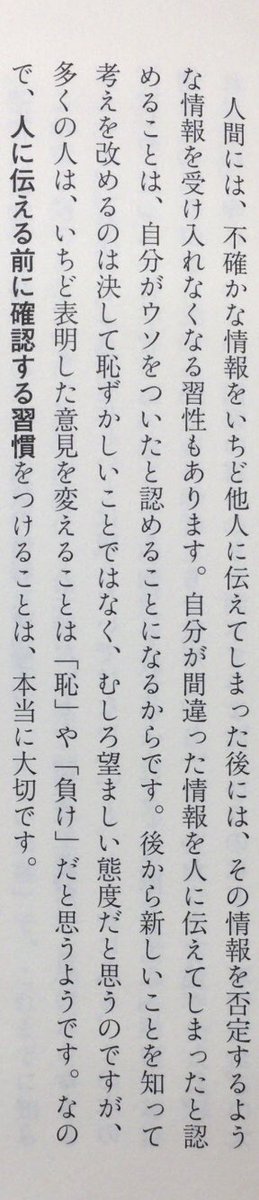 人間には、不確かな情報をいちど他人に伝えてしまった後には、その情報を否定するよう
な情報を受け入れなくなる習性もあります。自分が間違った情報を人に伝えてしまったと認
めることは、自分がウソをついたと認めることになるからです。後から新しいことを知って
考えを改めるのは決して恥ずかしいことではなく、むしろ望ましい態度だと思うのですが、
多くの人は、いちど表明した意見を変えることは「恥」や「負け」だと思うようです。なの
で、人に伝える前に確認する習慣をつけることは、本当に大切です。